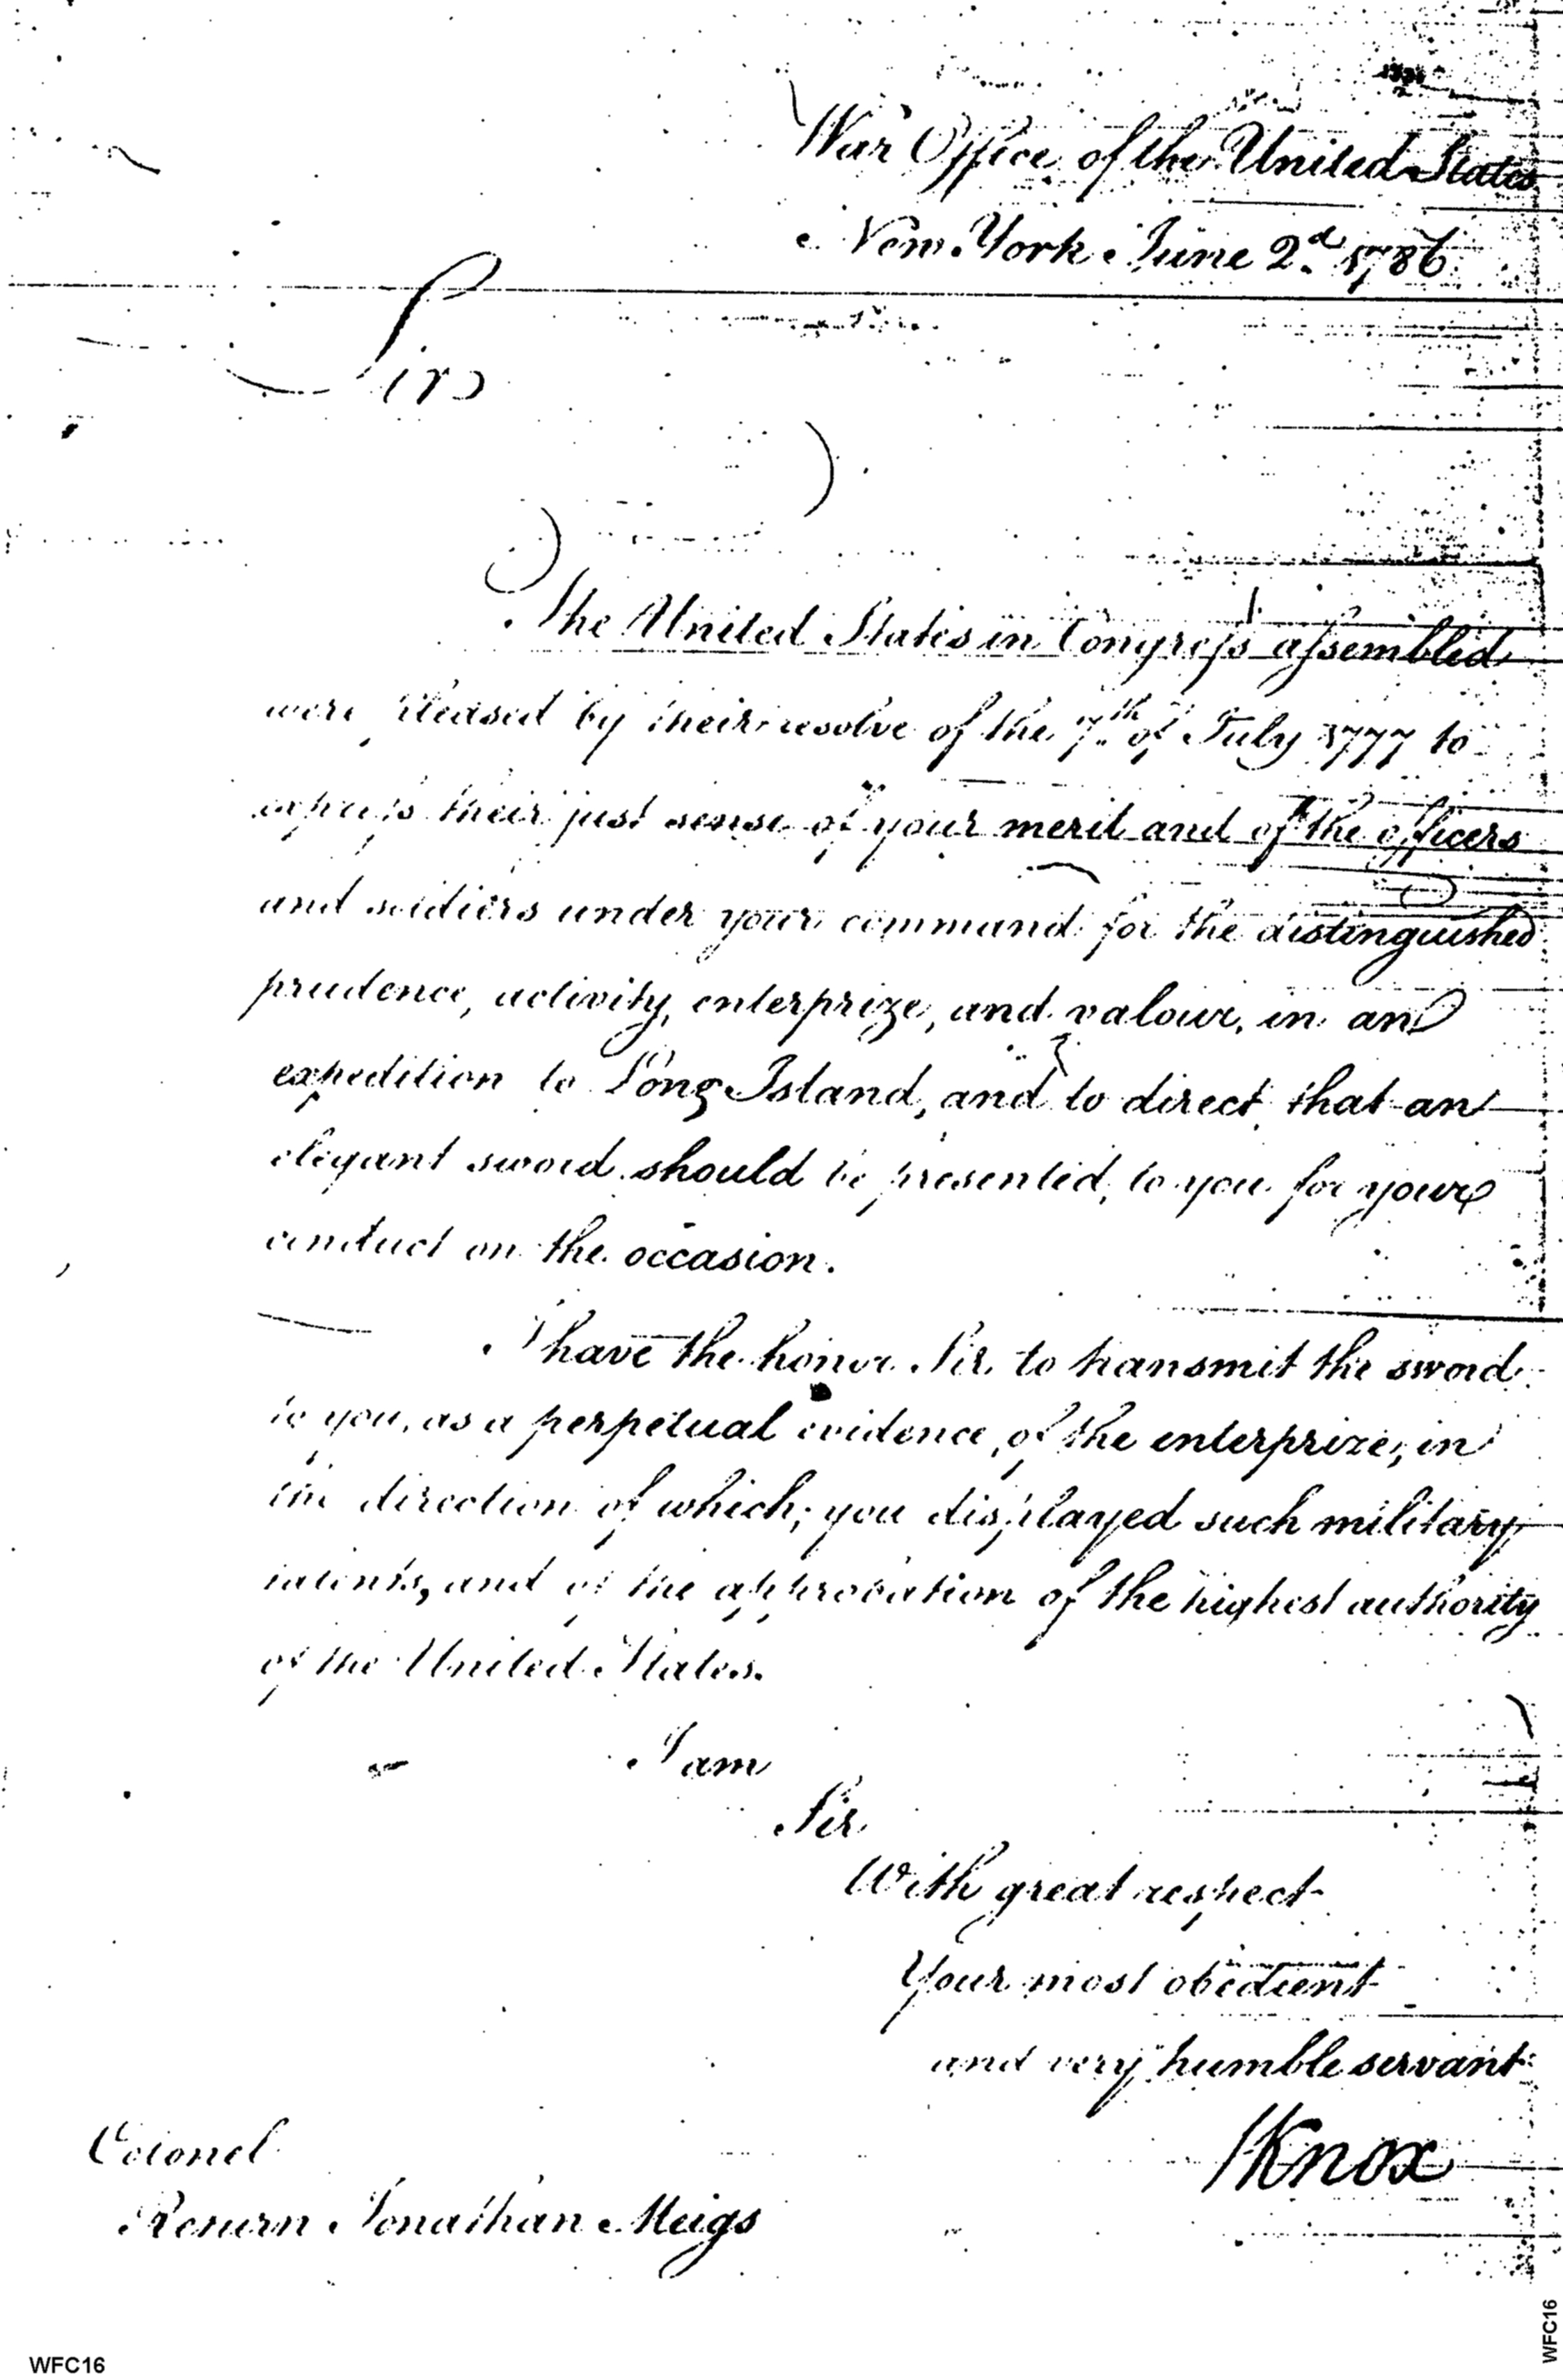 War Office of the United States
New York June 2d 1786
Sir
The United States in Congress assembled
were pleased by their resolve of the 7th of July 1777 to
express their just sense of your merit and of the officers
and soldiers under your command for the distinguished
prudence, activity, enterprize, and valour, in an
expedition to Long Island, and to direct that an
elegant sword should be presented, to you for your
conduct on the occasion.
I have the honor Sir to transmit the sword
to you, as a perpetual evidence, of the enterprize, in
the direction of which, you displayed such military
talents, and of the approbation of the highest authority
of the United States.
I am
Sir
With great respect
Your most obedient
and very humble servant
HKnox
Colonel
Return Jonathan Meigs
WFC16
WFC16